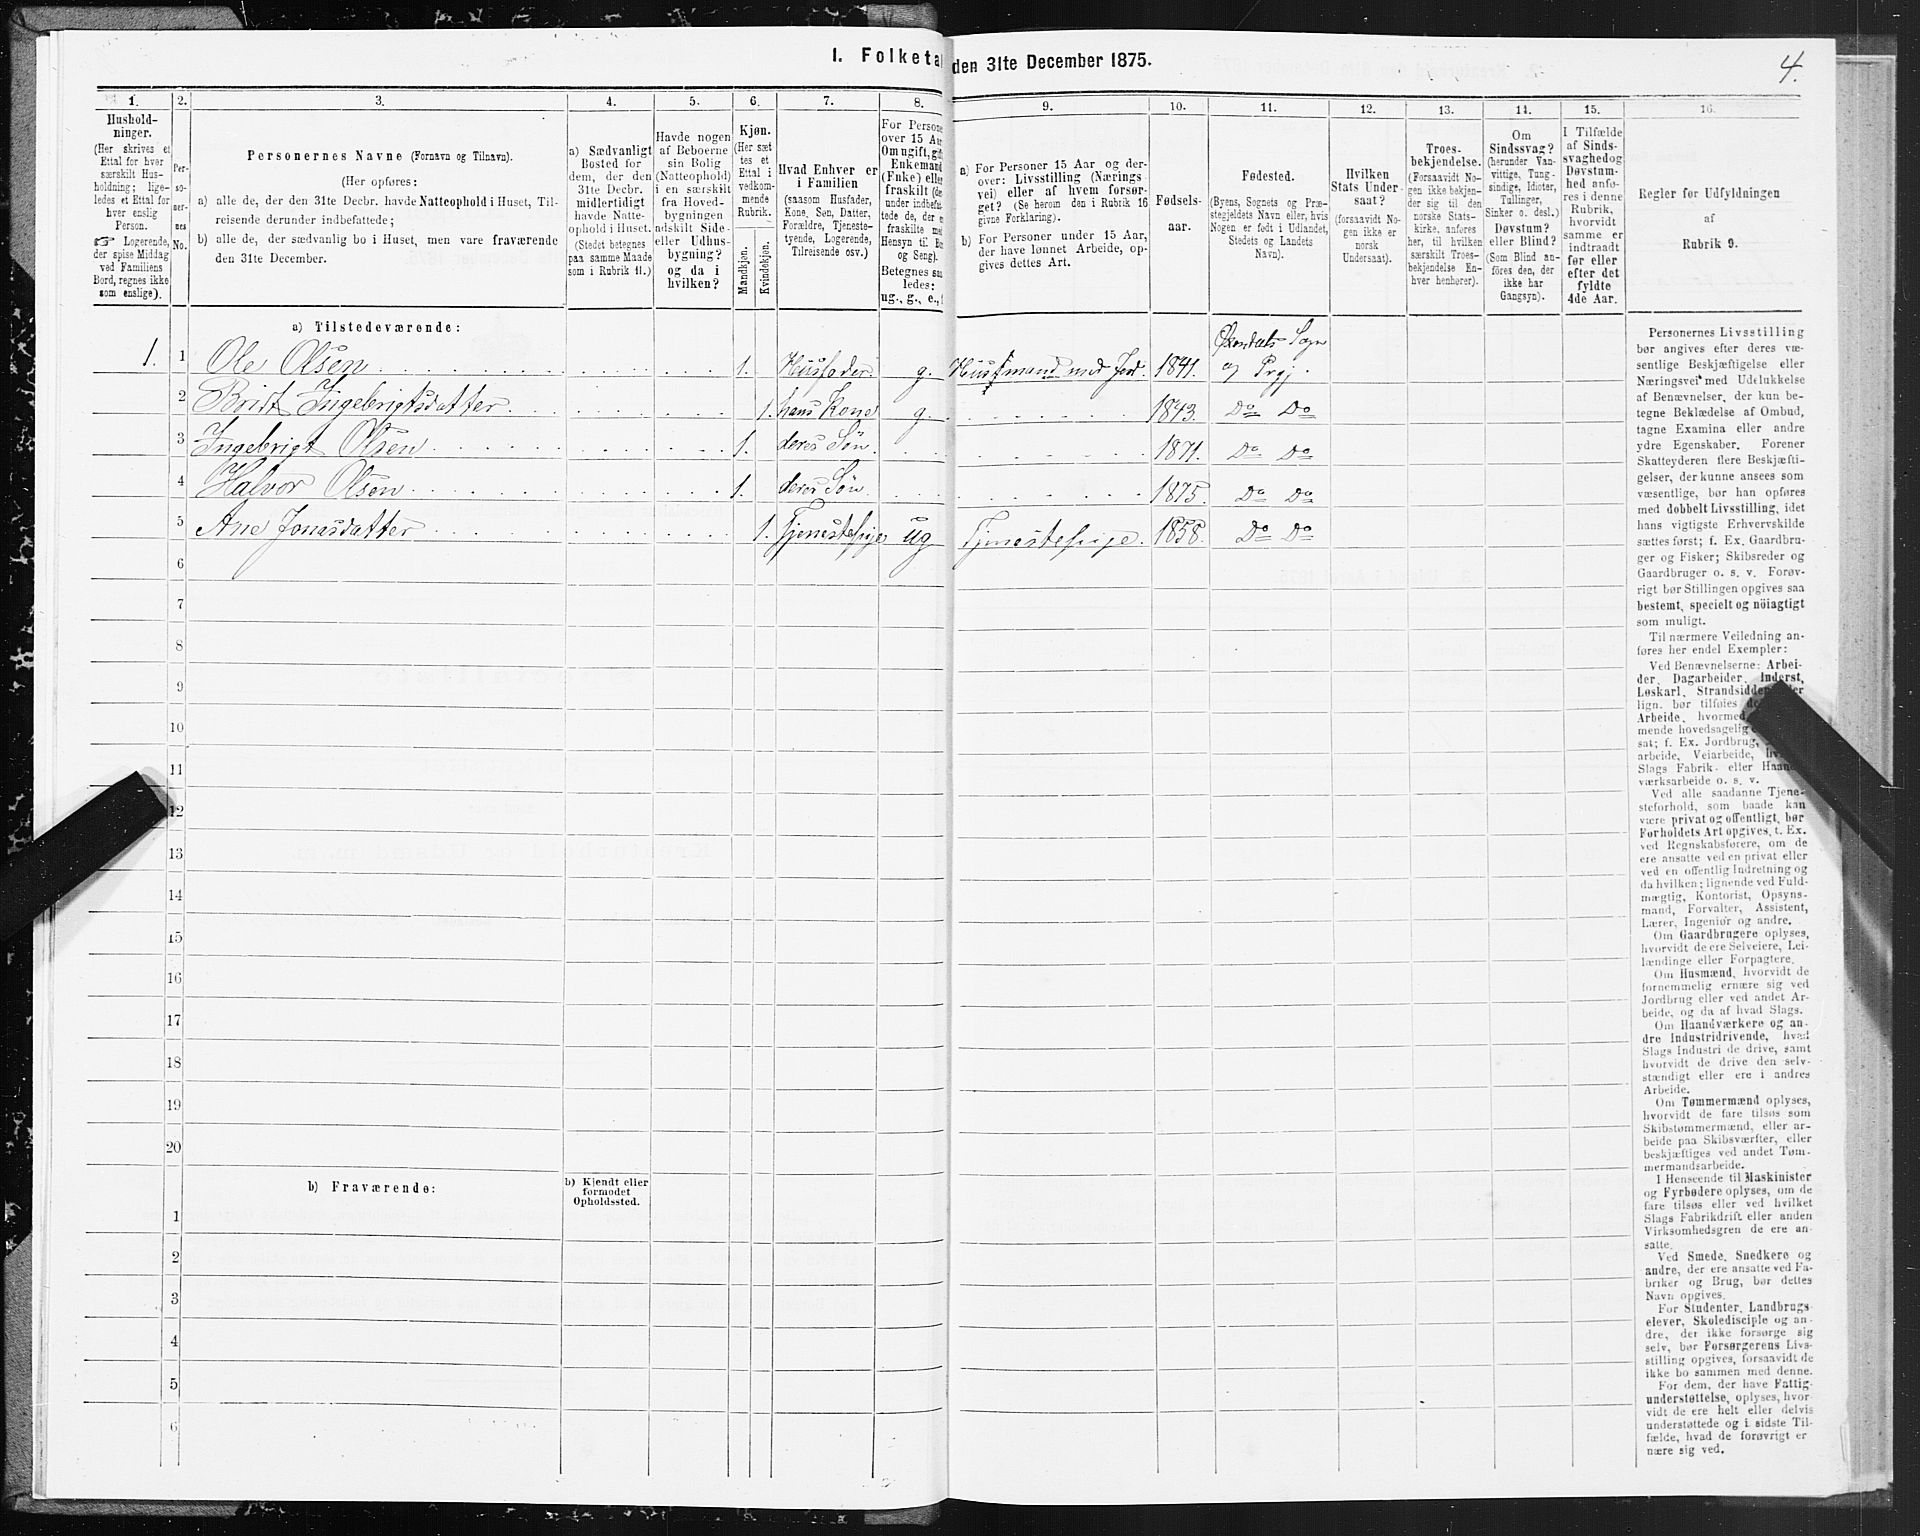 I. Folketal den 31te December 1875.
4.
1. 2. 3. 4. 5. 6. 7. 8. 9. 10. 11. 12. 13. 14. 15. 16.
Hushold-
ninger.
(Her skrives et
Ettal for hver
særskilt Hus-
holdning; lige-
ledes et Ettal for
hver enslig
Person.
☞ Logerende,
der spise Middag
ved Familiens
Bord, regnes ikke
som enslige).
Per-
so-
ner-
nes
No.
Personernes Navne (Fornavn og Tilnavn).
(Her opføres:
a) alle de, der den 31te Decbr. havde Natteophold i Huset, Til-
reisende derunder indbefattede;
b) alle de, der sædvanlig bo i Huset, men vare fraværende
den 31te December.
a) Sædvanligt
Bosted for
dem, der den
31te Decbr.
midlertidigt
havde Natte-
ophold i Huset.
(Stedet betegnes
paa samme Maade
som i Rubrik 11.)
Havde nogen
af Beboerne
sin Bolig
(Natteophold)
i en særskilt
fra Hoved-
bygningen
adskilt Side-
eller Udhus-
bygning?
og da i
hvilken?
Kjøn.
(Her sæt-
tes et
Ettal i
vedkom-
mende
Rubrik.
Mandkjøn.
Kvindekjøn.
Hvad Enhver er
i Familien
(saasom Husfader,
Kone, Søn, Datter,
Forældre, Tjeneste-
tyende, Logerende,
Tilreisende osv.)
For Persone
over 15 Aar
Om ugift, gif
Enkemand
(Enke) eller
fraskilt (de
under indbefat-
tede de, der e
fraskilte me
Hensyn til Bo
og Seng).
Betegnes saa
ledes:
ug., g., e.,
a) For Personer 15 Aar og der-
over: Livsstilling (Nærings-
vei) eller af hvem forsør-
get? (Se herom den i Rubrik 16
givne Forklaring).
b) For Personer under 15 Aar,
der have lønnet Arbeide, op-
gives dettes Art.
Fødsels-
aar.
Fødested.
(Byens, Sognets og Præ-
stegjeldets Navn eller, hvis
Nogen er født i Udlandet,
Stedets og Landets
Navn).
Hvilken
Stats Under-
saat?
(forsaavidt No-
gen ikke er
norsk
Undersaat).
Troes-
bekjendelse.
(Forsaavidt No-
gen ikke bekjen-
der sig til den
norske Stats-
kirke, anføres
her, til hvilken
særskilt Troes-
bekjendelse En-
hver henhører).
Om
Sindssvag?
(herunder Van-
vittige, Tung-
sindige, Idioter,
Tullinger,
Sinker o. desl.)
Døvstum?
eller Blind?
(Som Blind an-
føres den, der
ikke har
Gangsyn).
I Tilfælde
af Sinds-
svaghedog
Døvstum-
hed anfø-
res i denne
Rubrik,
hvorvidt
samme er
indtraadt
før eller
efter det
fyldte
4de Aar.
Regler før Udfyldningen
af
Rubrik 9.
a) Tilstedeværende:
1. 1 Ole Olsen 1. Husfader g. Huusmand med Jord 1841. Øxendals Sogn
og Prgj.
2 Bridt Ingebrigtsdatter 1. hans Kone g. 1843. Do Do
3 Ingebrigt Olsen 1. deres Søn 1871. Do Do
4 Halvor Olsen 1. deres Søn 1875. Do Do
5 Ane Jonasdatter 1. Tjenestepige ug Tjenestepige. 1858. Do Do
6
7
8
9
10
11
12
13
14
15
16
17
18
19
20
b) Fraværende:
b) Kjendt eller
formodet
Opholdssted.
1
2
3
4
5
6
Personernes Livsstilling
bør angives efter deres væ-
sentlige Beskjæftigelse eller
Næringsvei med Udelukkelse
af Benævnelser, der kun be-
tegne Beklædelse af Ombud,
tagne Examina eller andre
ydre Egenskaber. Forener
Skatteyderen flere Beskjæfti-
gelser, der kunne ansees som
væsentlige, bør han opføres
med dobbelt Livsstilling, idet
hans vigtigste Erhvervskilde
sættes først; f. Ex. Gaardbru-
ger og Fisker; Skibsreder og
Gaardbruger o. s. v. Forøv-
rigt bør Stillingen opgives saa
bestemt, specielt og nöiagtigt
som muligt.
Til nærmere Veiledning an-
føres her endel Exempler:
Ved Benævnelserne: Arbei-
der, Dagarbeider, Inderst,
Løskarl, Strandsidder
lign. bør tilføies
Arbeide, hvormed
mende hovedsagelig
sat; f. Ex. Jordbrug,
arbeide, Veiarbeide,
Slags Fabrik- eller Haand-
værksarbeide o. s. v.
Ved alle saadanne Tjene-
steforhold, som baade kan
være privat og offentligt, bør
Forholdets Art opgives, t. Ex.
ved Regnskabsførere, om de
ere ansatte ved en privat eller
ved en offentlig Indretning og
da hvilken; lignende ved Fuld-
mægtig, Kontorist, Opsyns-
mand, Forvalter, Assistent,
Lærer, Ingeniør og andre.
Om Gaardbrugere oplyses,
hvorvidt de ere Selveiere, Lei-
lændinge eller Forpagtere.
Om Husmænd, hvorvidt de
fornemmelig ernære sig ved
Jordbrug eller ved andet Ar-
beide, og da af hvad Slags.
Om Haandværkere og an-
dre Industridrivende, hvad
Slags Industri de drive, samt
hvorvidt de drive den selv-
stændigt eller ere i andres
Arbeide.
Om Tømmermænd oplyses,
hvorvidt de fare tilsøs som
Skibstømmermænd, eller ar-
beide paa Skibsværfter, eller
beskjæftiges ved andet Tøm-
mermandsarbeide.
I Henseende til Maskinister
og Fyrbødere oplyses, om de
fare tilsøs eller ved hvilket
Slags Fabrikdrift eller anden
Virksomhedsgren de ere an-
satte.
Ved Smede, Snedkere og
andre, der ere ansatte ved Fa-
briker og Brug, bør dettes
Navn opgives.
For Studenter, Landbrugs-
elever, Skoledisciple og an-
dre, der ikke forsørge sig
selv, bør Forsørgerens Livs-
stilling opgives, forsaavidt de
ikke bo sammen med denne.
For dem, der have Fattig-
understøttelse, oplyses, hvor-
vidt de ere helt eller delvis
understøttede og i sidste Til-
fælde, hvad de forøvrigt er
nære sig ved.